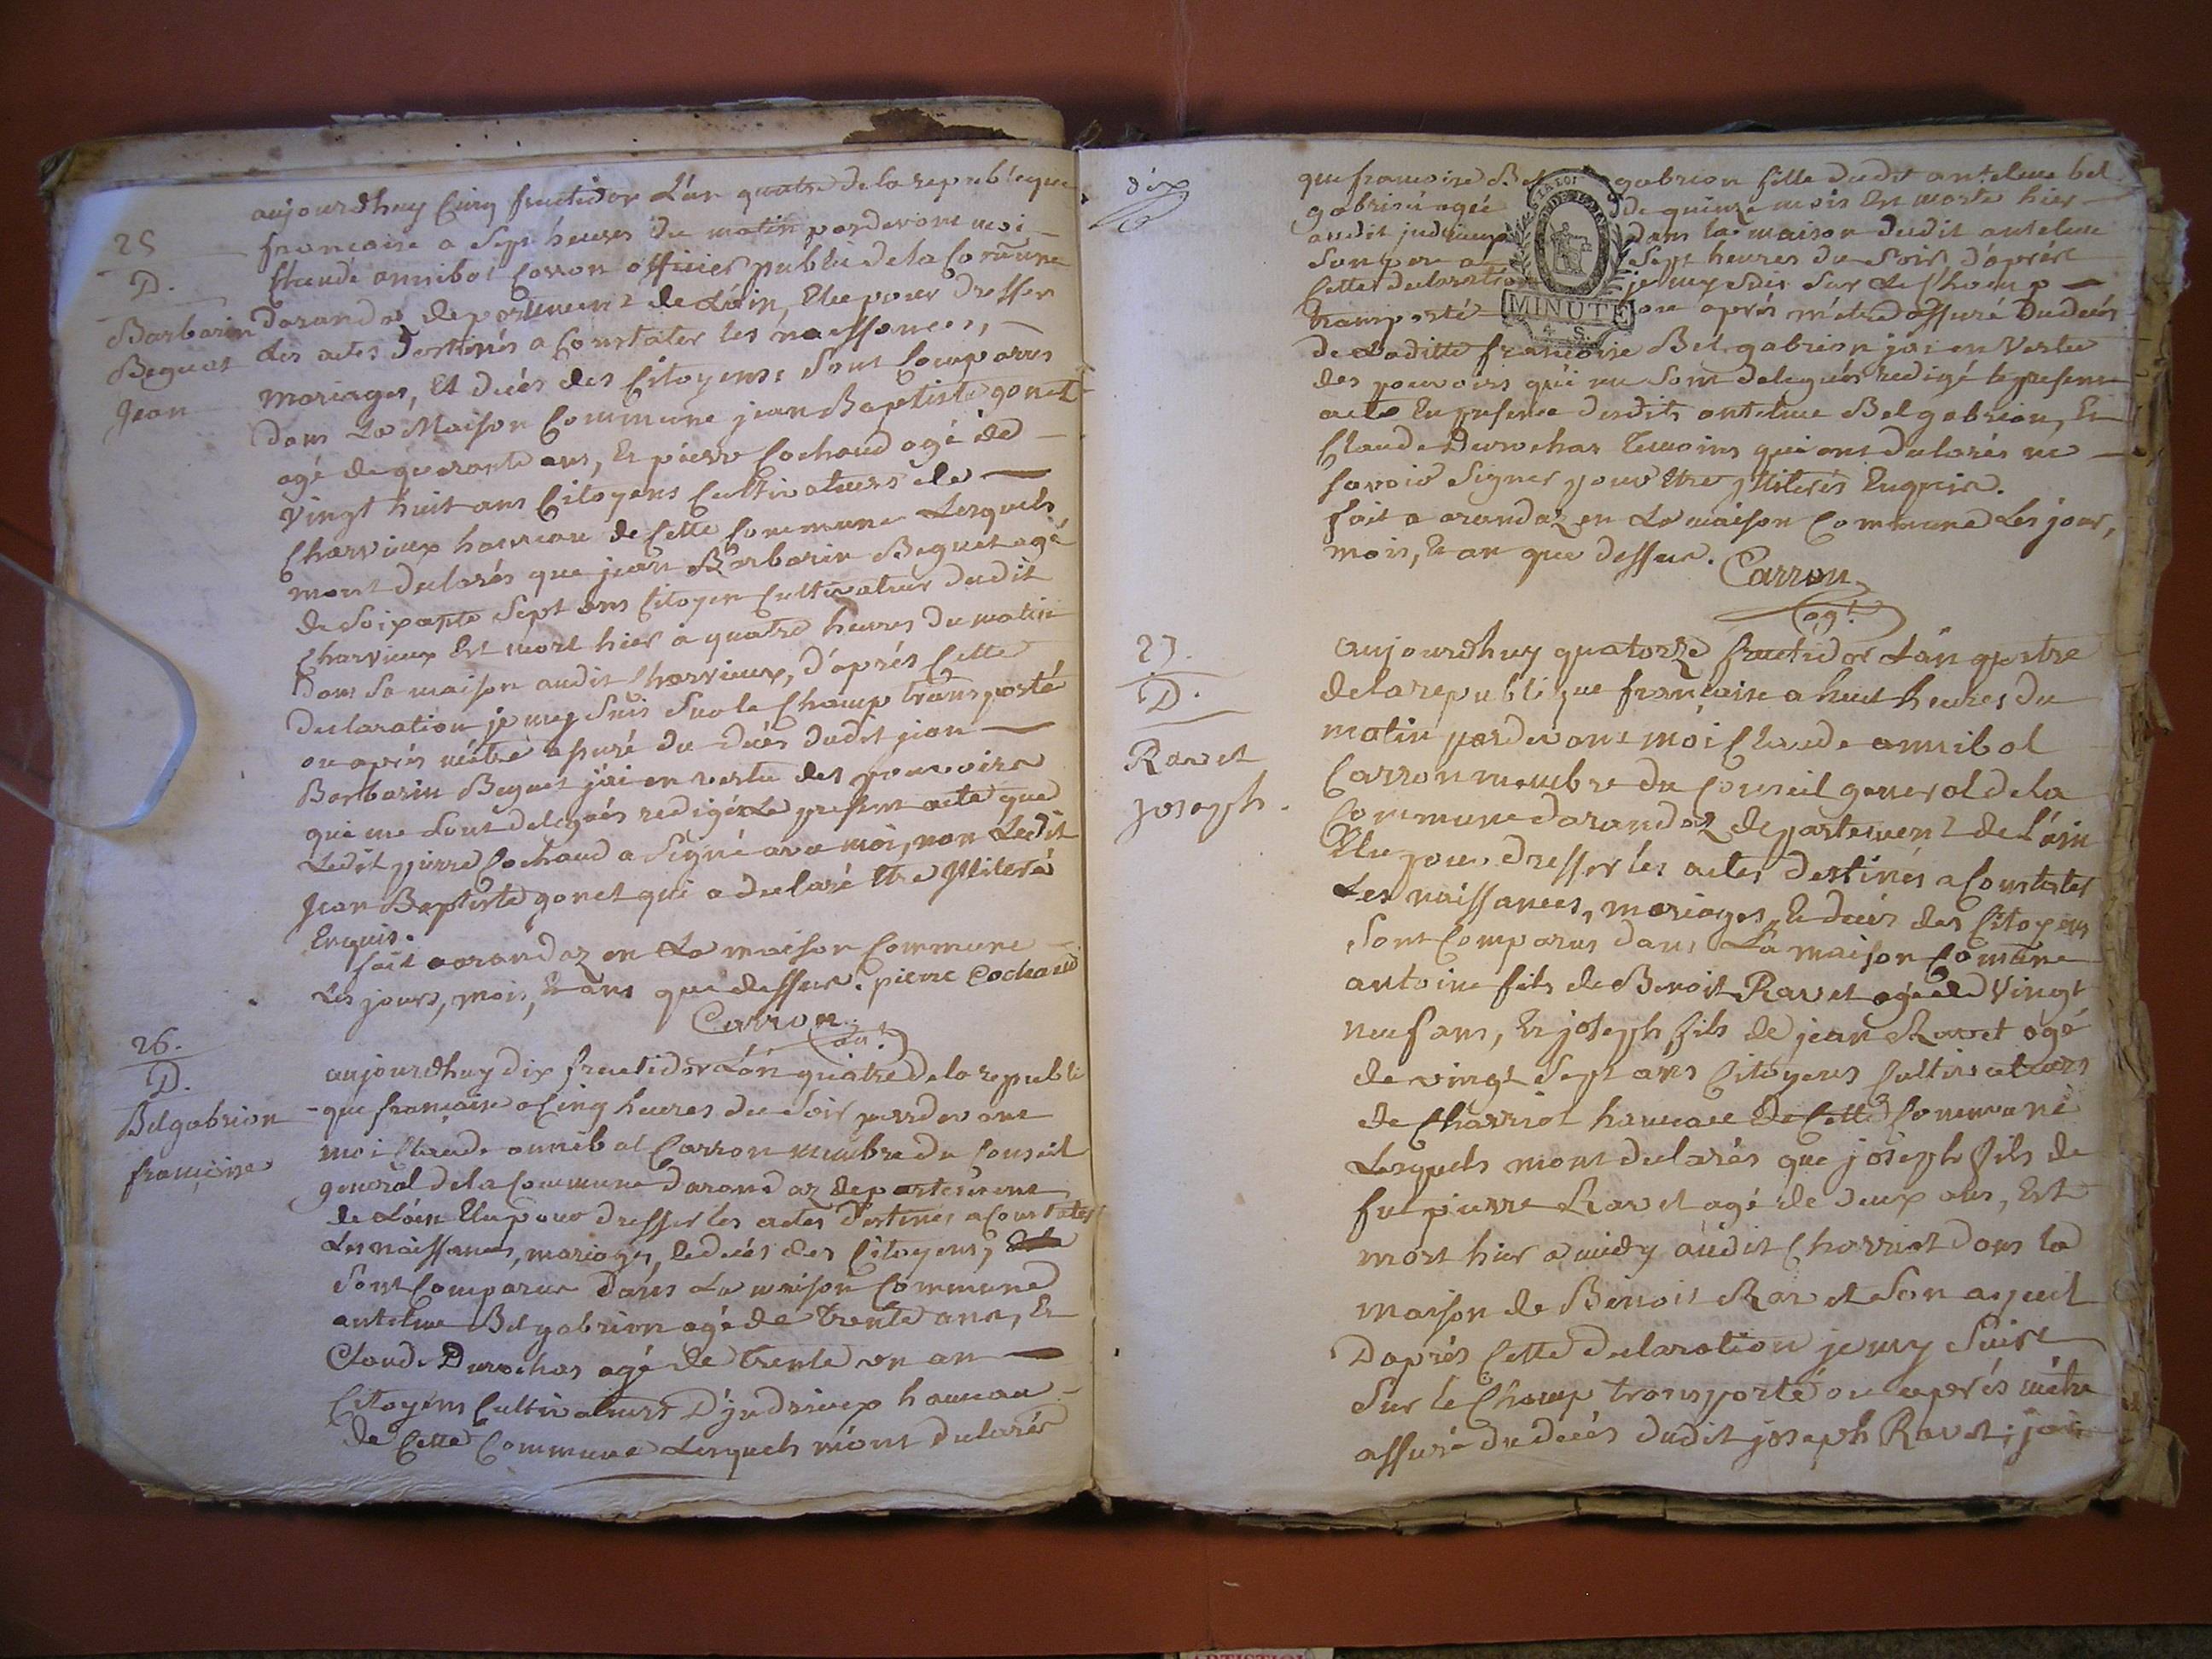 25
D.
Barbarin
Beguet
Jean
aujourdhuy Cinq fructidor L'an quatre de la republique
francaise a Sept heures du matin pardevant moi
Claude annibal Carron officier public de la Comune
darandas departement de L'ain, Elu pour dresser
Les actes destinés a Constater les naissances,
mariages, Et décés des Citoyens, Sont Comparus
dans La Maison Commune jean Baptiste gonet
agé de quarante ans, Et pierre Cochaud agé de
vingt huit ans Citoyens Cultivateurs de
Charvieux hameau de Cette Commune Lesquels
mont declarés que jean Barbarin Beguet agé
de Soixante Sept ans Citoyen Cultivateur dudit
Charvieux Est mort hier a quatre heures du matin
dans Sa maison audit Charvieux, d'après Cette
declaration je my Suis Sur le Champ transporté
ou aprés métre assuré du décés dudit jean
Barbarin Beguet j'ai en vertu des pouvoirs
qui me Sont delegués redigé Le present acte que
Ledit pierre Cochaud a Signé avec moi, non Ledit
Jean Baptiste gonet qui a declaré Etre Illiteré
Enquis.
fait a arandaz en La maison Commune
Les jours, mois, Et ans que dessus. pierre Cochaud
Carron
26.
D.
Belgabrion
françoise
aujourdhuy dix fructidor L'an quatre de la republi
-que française a Cinq heures du Soir pardevant
moi Claude annibal Carron membre du Conseil
general de la Commune darandaz departement
de L'ain Elu pour dresser les actes destinés a Constater
Les naissances, mariages, les décés des Citoyens,
Sont Comparus dans La maison Commune
antelme Belgabrion agé de trente ans, Et
Claude Durochat agé de trente un an
Citoyens Cultivateurs D'judrieux hameau
de Cette Commune Lesquels m'ont declarés
dix
que francoise Bel gabrion fille dudit antelme bel
gabrion agée de quinze mois Est morte hier
audit judrieux dans la maison dudit antelme
Son pere a Sept heures du Soir d'après
Cette declaration je my Suis Sur Le Champ
transporté ou aprés métre assuré du décés
de Laditte francoise Belgabrion jai en Vertu
des pouvoirs qui me Sont delegués redigé le present
acte En presence desdits antelme Belgabrion, Et
Claude Durochat temoins qui ont declarés ne
Savoir Signer pour Etre Illiterés Enquis.
fait a arandaz en La maison Commune Les jour,
mois, Et an que dessus. Carron
agt
LA LOI
MINUTE
4. S.
27.
D.
Ravet
joseph.
aujourdhuy quatorze fructidor L'an quatre
de la republique française a huit heures du
matin pardevant moi Claude annibal
Carron membre du Conseil general de la
Commune darandaz departement de L'ain
Elu pour dresser les actes destinés a Constater
Les naissances, mariages, Et décés des Citoyens
Sont Comparus dans La maison Comune
antoine fils de Benoit Ravet agé de Vingt
neuf ans, Et joseph fils de jean Ravet agé
de vingt Sept ans Citoyens Cultivateurs
de Charriot hameau de Cette Commune
Lesquels mont declarés que joseph fils de
fut pierre Ravet agé de deux ans, Est
mort hier a midy audit Charriot dans la
maison de Benoit Ravet Son ayeul
D'après Cette declaration je my Suis
Sur le Champ transporté ou aprés métre
assuré du décés dudit joseph Ravet, jai